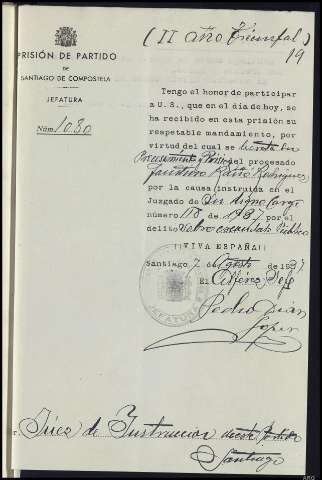 (II año Triunfal)
19
PRISIÓN DE PARTIDO
DE
SANTIAGO DE COMPOSTELA
JEFATURA
Núm. 1030
Tengo el honor de participar
a U.S., que en el día de hoy, se
ha recibido en esta prisión su
respetable mandamiento, por
virtud del cual se decreta
Procesamiento y Prisión del procesado
Rodríguez
por la causa instruida en el
Juzgado de Su digno cargo
número 118 de 1937 por el
delito
¡¡VIVA ESPAÑA!!
Santiago 7 de Agosto de 1937.
El Alférez Jefe
Pedro
López
JEFATURA
Juez de Instrucción de este Partido
Santiago